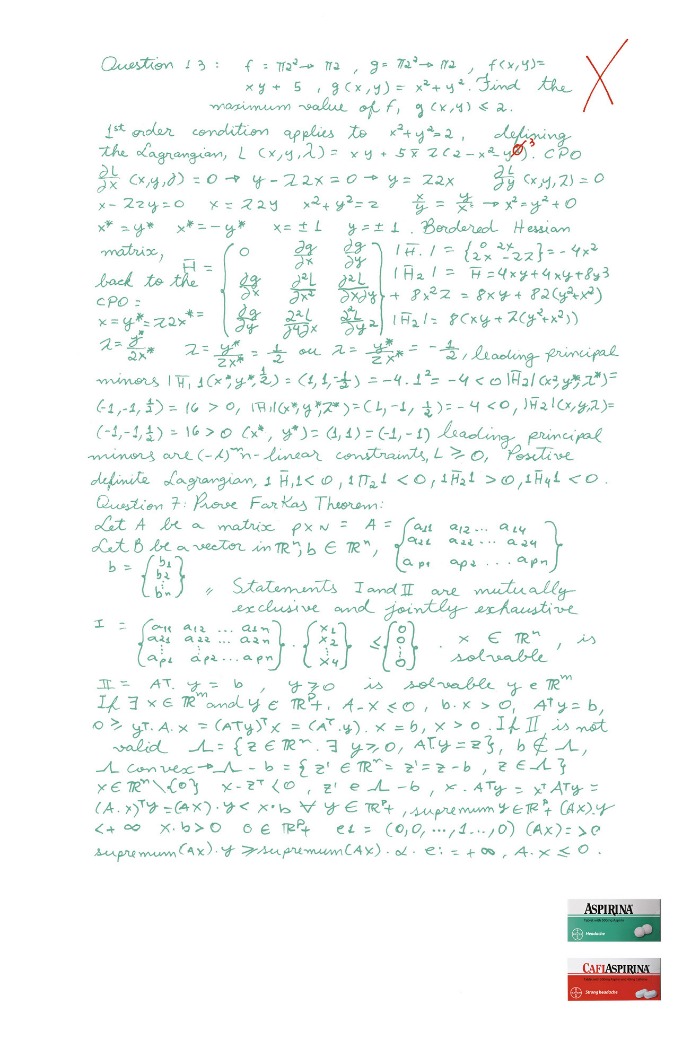 Question 13: f = π2²→ π2, g = π2²→ π2, f(x,y)=
xy + 5, g(x,y) = x²+y². Find the
maximum value of f, g(x,y) ≤ 2.
1st order condition applies to x²+y²=2, defining
the Lagrangian, L (x,y,λ) = xy + 5π 2(2-x²-yØ³). CPO
∂L/∂x (x,y,∂) = 0 → y - 22x = 0 → y = 22x ∂L/∂y (x,y,2) = 0
x - 22y = 0 x = 22y x²+y²=2 x/y = y/x → x² = y² + 0
x* = y* x* = -y* x = ±1 y = ±1. Bordered Hessian
matrix, H̄ = { 0 ∂g/∂x ∂g/∂y } |H̄.| = {0 2x 2x -22} = -4x²
back to the { ∂g/∂x ∂²L/∂x² ∂²L/∂x∂y } |H̄2| = H̄ = 4xy + 4xy + 8y3
CPO = + 8x²2 = 8xy + 82(y²+x²)
x = y* = 22x* = { ∂g/∂y 2²L/∂y∂x ∂²L/∂y2 } |H̄2| = 8(xy + 2(y²+x²))
λ = y*/2x* λ = y*/2x* = 1/2 ou λ = y*/2x* = -1/2, leading principal
minors |H̄,1(x*,y*,1/2) = (1,1,-1/2) = -4.1² = -4 < 0 |H̄2|(x*,y*,λ*)=
(-1,-1,1/2) = 16 > 0, |H̄1|(x*,y*,λ*) = (1,-1,1/2) = -4 < 0, |H̄2|(x,y,λ)=
(-1,-1,1/2) = 16 > 0 (x*, y*) = (1,1) = (-1,-1) leading principal
minors are (-1)^m n-linear constraints, L ≥ 0, Positive
definite Lagrangian, 1 H̄,1 < 0, 1 π21 < 0, 1H̄21 > 0, 1H̄41 < 0.
Question 7: Prove Farkas Theorem:
Let A be a matrix p×N = A = { a11 a12 ... a14
Let B be a vector in ℝⁿ, b ∈ ℝⁿ, a21 a22 ... a24
ap1 ap2 ... apn }
b = { b1 b2 ⋮ bn } " Statements I and II are mutually
exclusive and jointly exhaustive
I = { a11 a12 ... a1n } · { x1 } ≤ { 0 } . x ∈ ℝⁿ, is
{ a21 a22 ... a2n } { x2 } { 0 } solveable
{ ap1 ap2 ... apn } { x4 } { 0 }
II = AT. y = b, y ≥ 0 is solvable y e ℝᵐ
If ∃ x ∈ ℝᵐ and y ∈ ℝᴾ+, A-x ≤ 0, b.x > 0, Aᵀy = b,
0 ≥ yᵀ.A.x = (ATy)ᵀx = (Aᵀ.y).x = b, x > 0. If II is not
valid Λ = {z ∈ ℝⁿ. ∃ y ≥ 0, AT.y = z}, b ∉ Λ,
Λ convex → Λ - b = {z' ∈ ℝⁿ = z' = z-b, z ∈ Λ}
x ∈ ℝⁿ\{0} x - zᵀ < 0, z' e Λ - b, x. ATy = xᵀATy =
(A.x)ᵀy = (AX).y < x.b ∀ y ∈ ℝᴾ+, supremum y ∈ ℝᴾ+ (AX).y
< + ∞ x.b > 0 0 ∈ ℝᴾ+ e1 = (0,0,...,1...,0) (AX) = > 0
supremum (AX).y ≥ supremum (AX). α. ei = + ∞, A.x ≤ 0.
ASPIRINA
Headache
CAFIASPIRINA
Strong headache